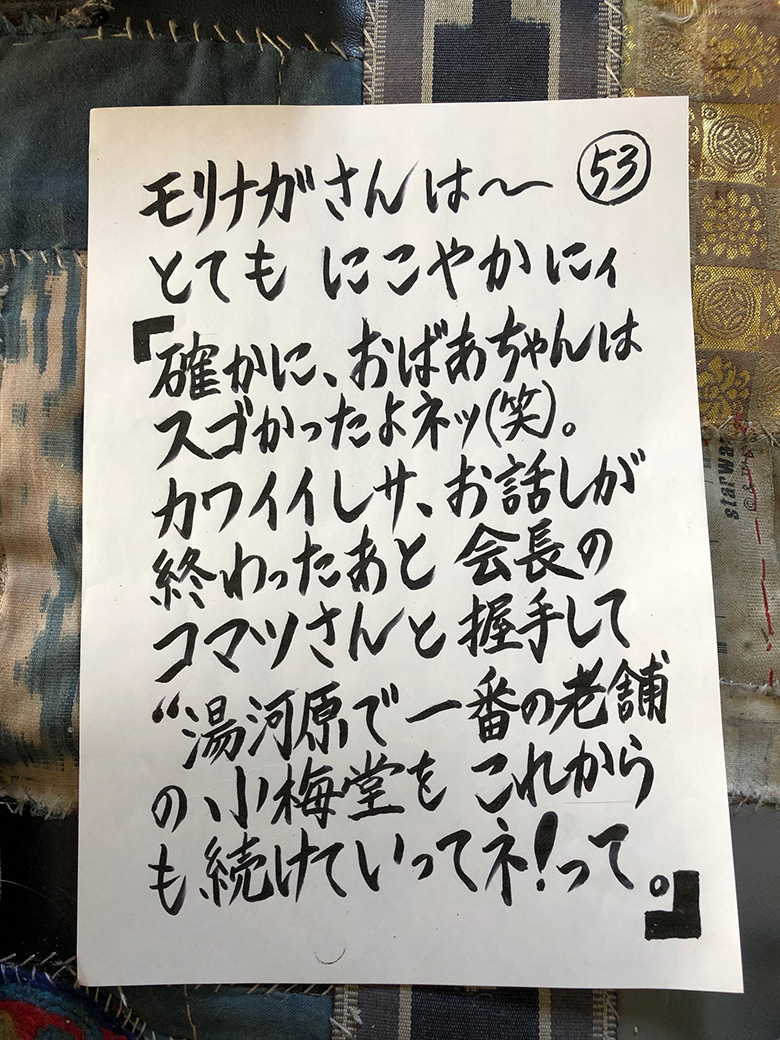 モリナガさんは〜 53
とても にこやかにィ
『確かに、おばあちゃんは
スゴかったよネッ(笑)。
カワイイしサ、お話しが
終わったあと 会長の
コマツさんと握手して
“湯河原で一番の老舗
の小梅堂を これから
も続けていってネ!って。』
starwa